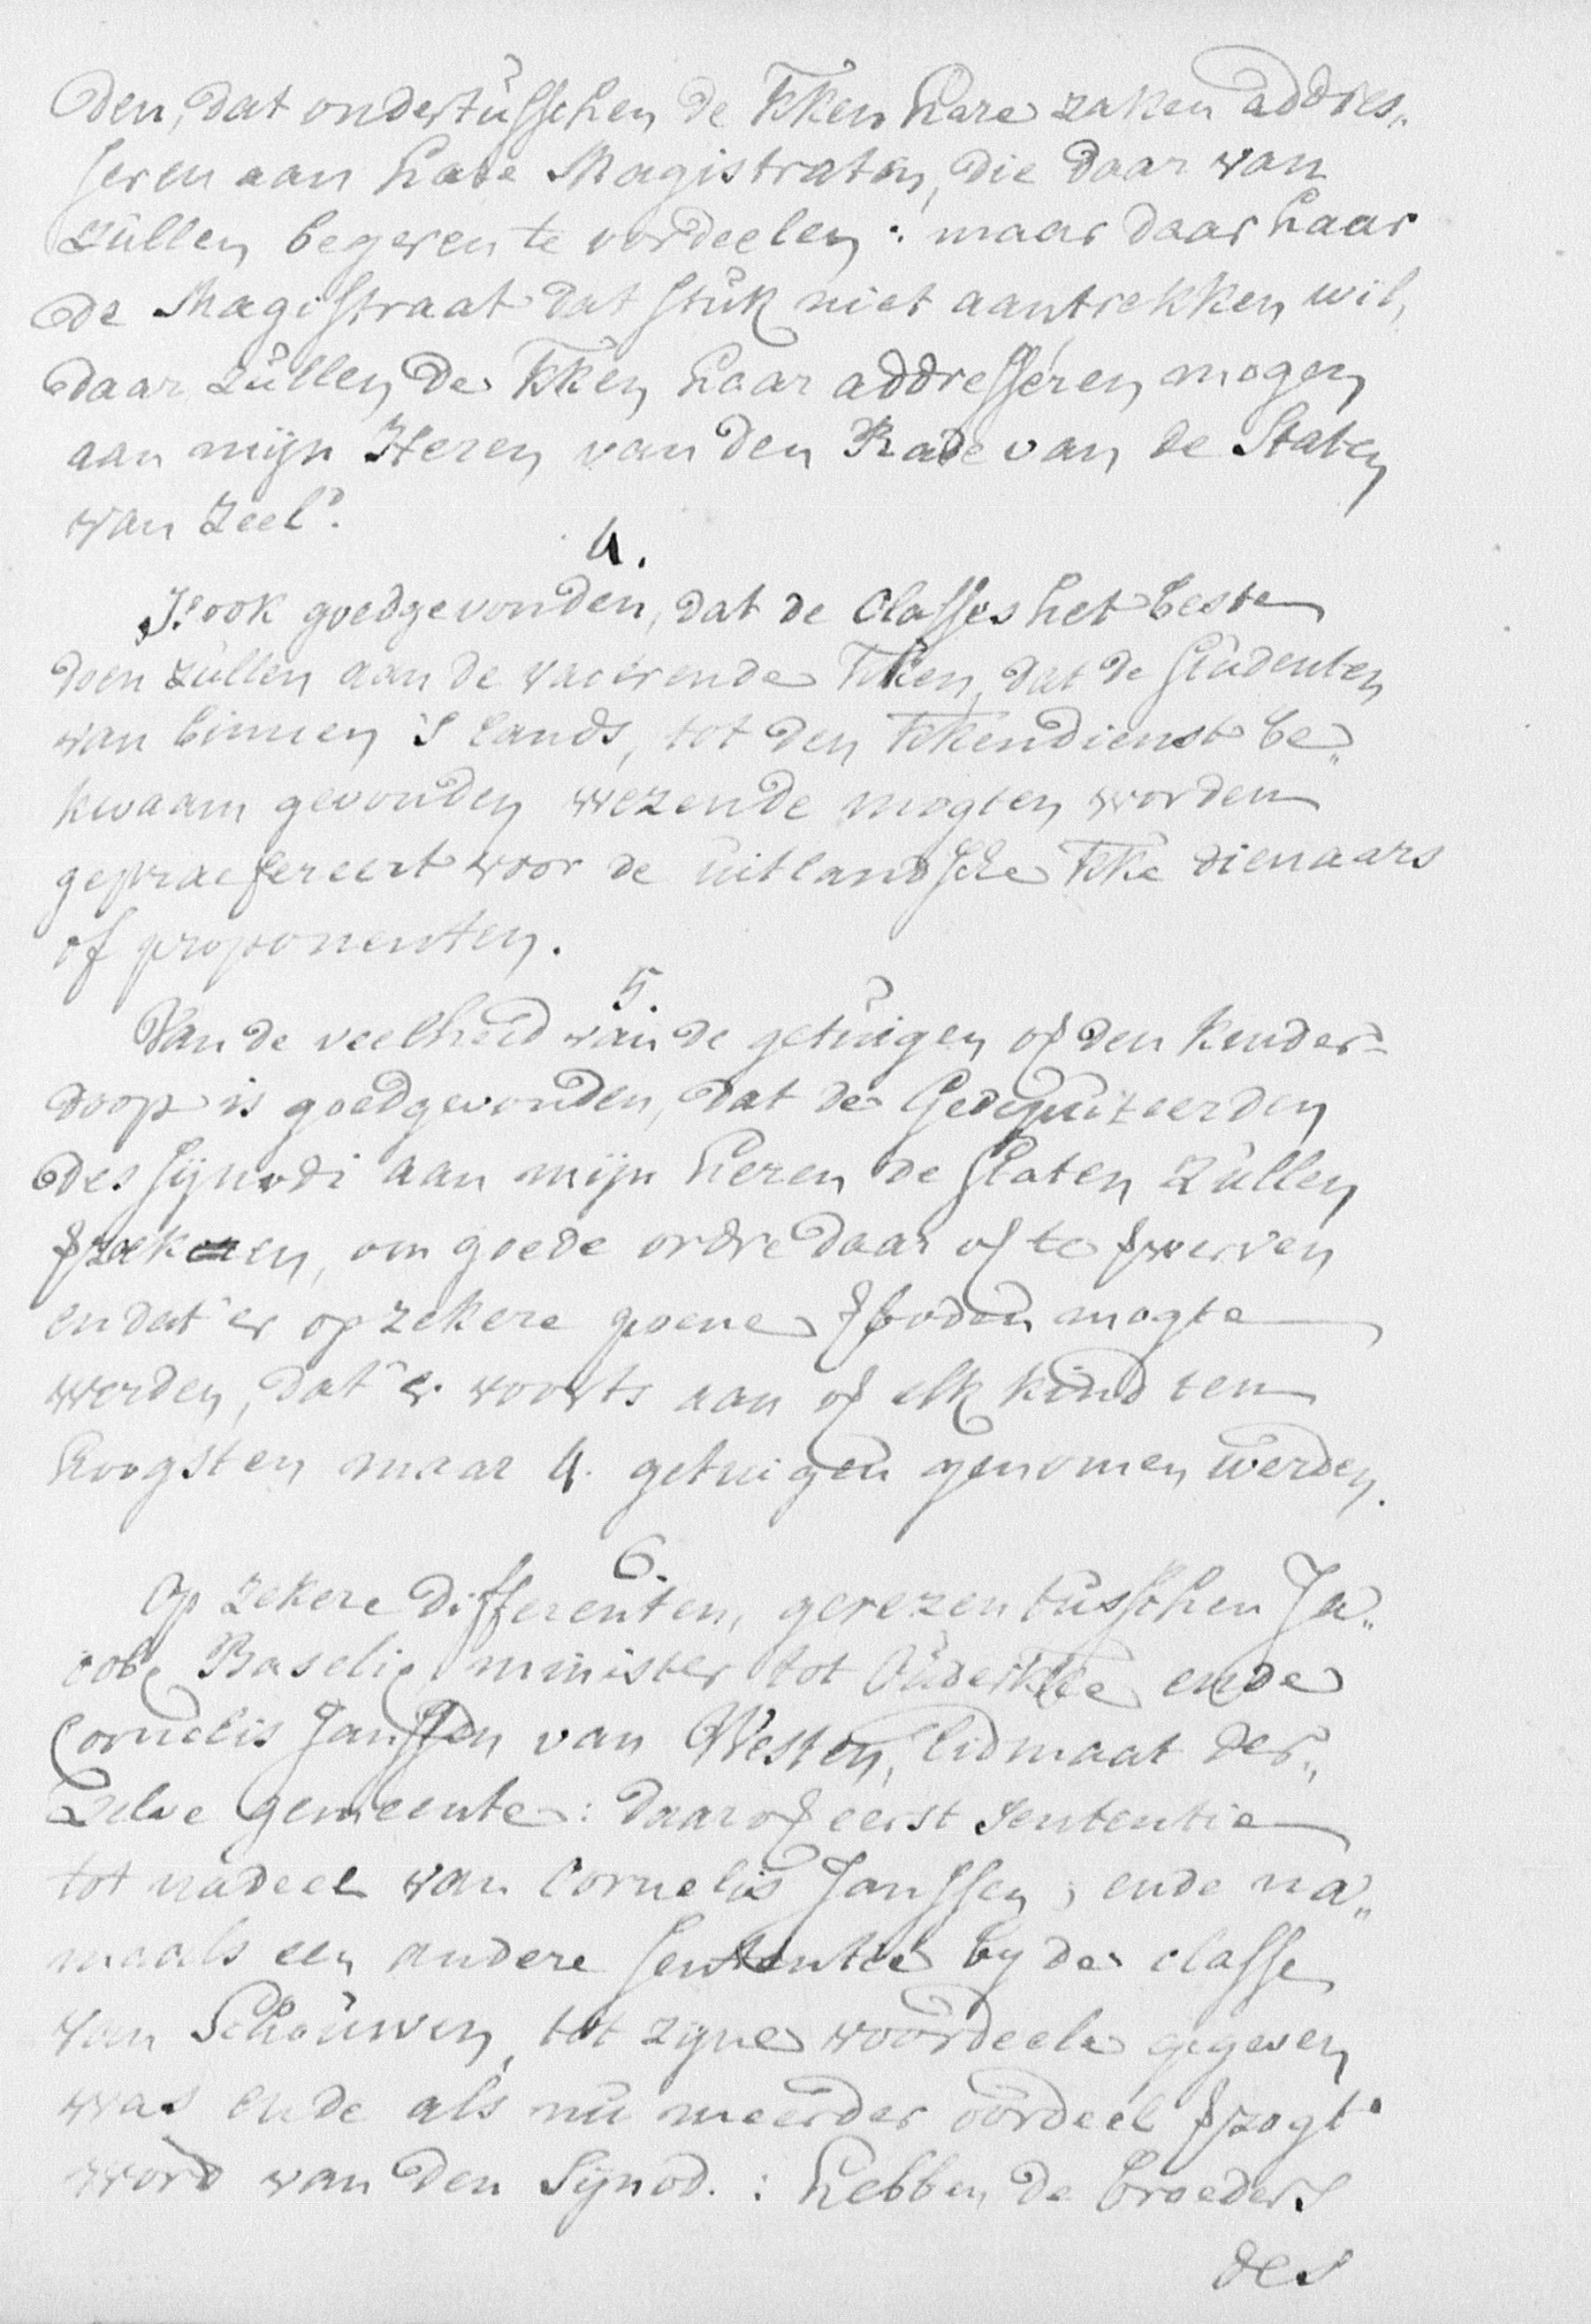 den, dat ondertusschen de kken hare zaken addres„
seren aan hare Magistraten, die daar van
zullen begeren te oordeelen: maar daar haar
de Magistraat dat stuk niet aantrekken wil,
daar zullen de kken haar addresseren mogen
aan mijn Heren van den Rade van de Staten
van Zeeld.
4.
Is ook goedgevonden, dat de Classes het beste
doen zullen aan de vacerende kken, dat de studenten
van binnen 's lands, tot den kkendienst be„
kwaam gevonden wezende mogten worden
gepraefereert voor de uitlandsche kke dienaars
of proponenten.
5.
Van de veelheid van de getuigen of den kinder-
doop is goedgevonden, dat de Gedeputeerden
des synodi aan mijn heren de staten zullen
, om goede ordre daar of te
en dat 'er op zekere poene mogte
werden, dat 'er voorts aan of elk kind ten
hoogsten maar 4. getuigen genomen werden.
6.
Op zekere differenten, gerezen tusschen Ja„
cobe Baselie minister tot Ouderkke ende
Cornelis Janssen van Westen, lidmaat der„
zelve gemeente: daar of eerst sententie
tot nadeel van Cornelis Janssen; ende na„
maals een andere sententie by de classe
van Schouwen, tot zyne voordeele gegeven
was ende als nu meerder oordeel
word van den Synod.: hebben de broeders
des